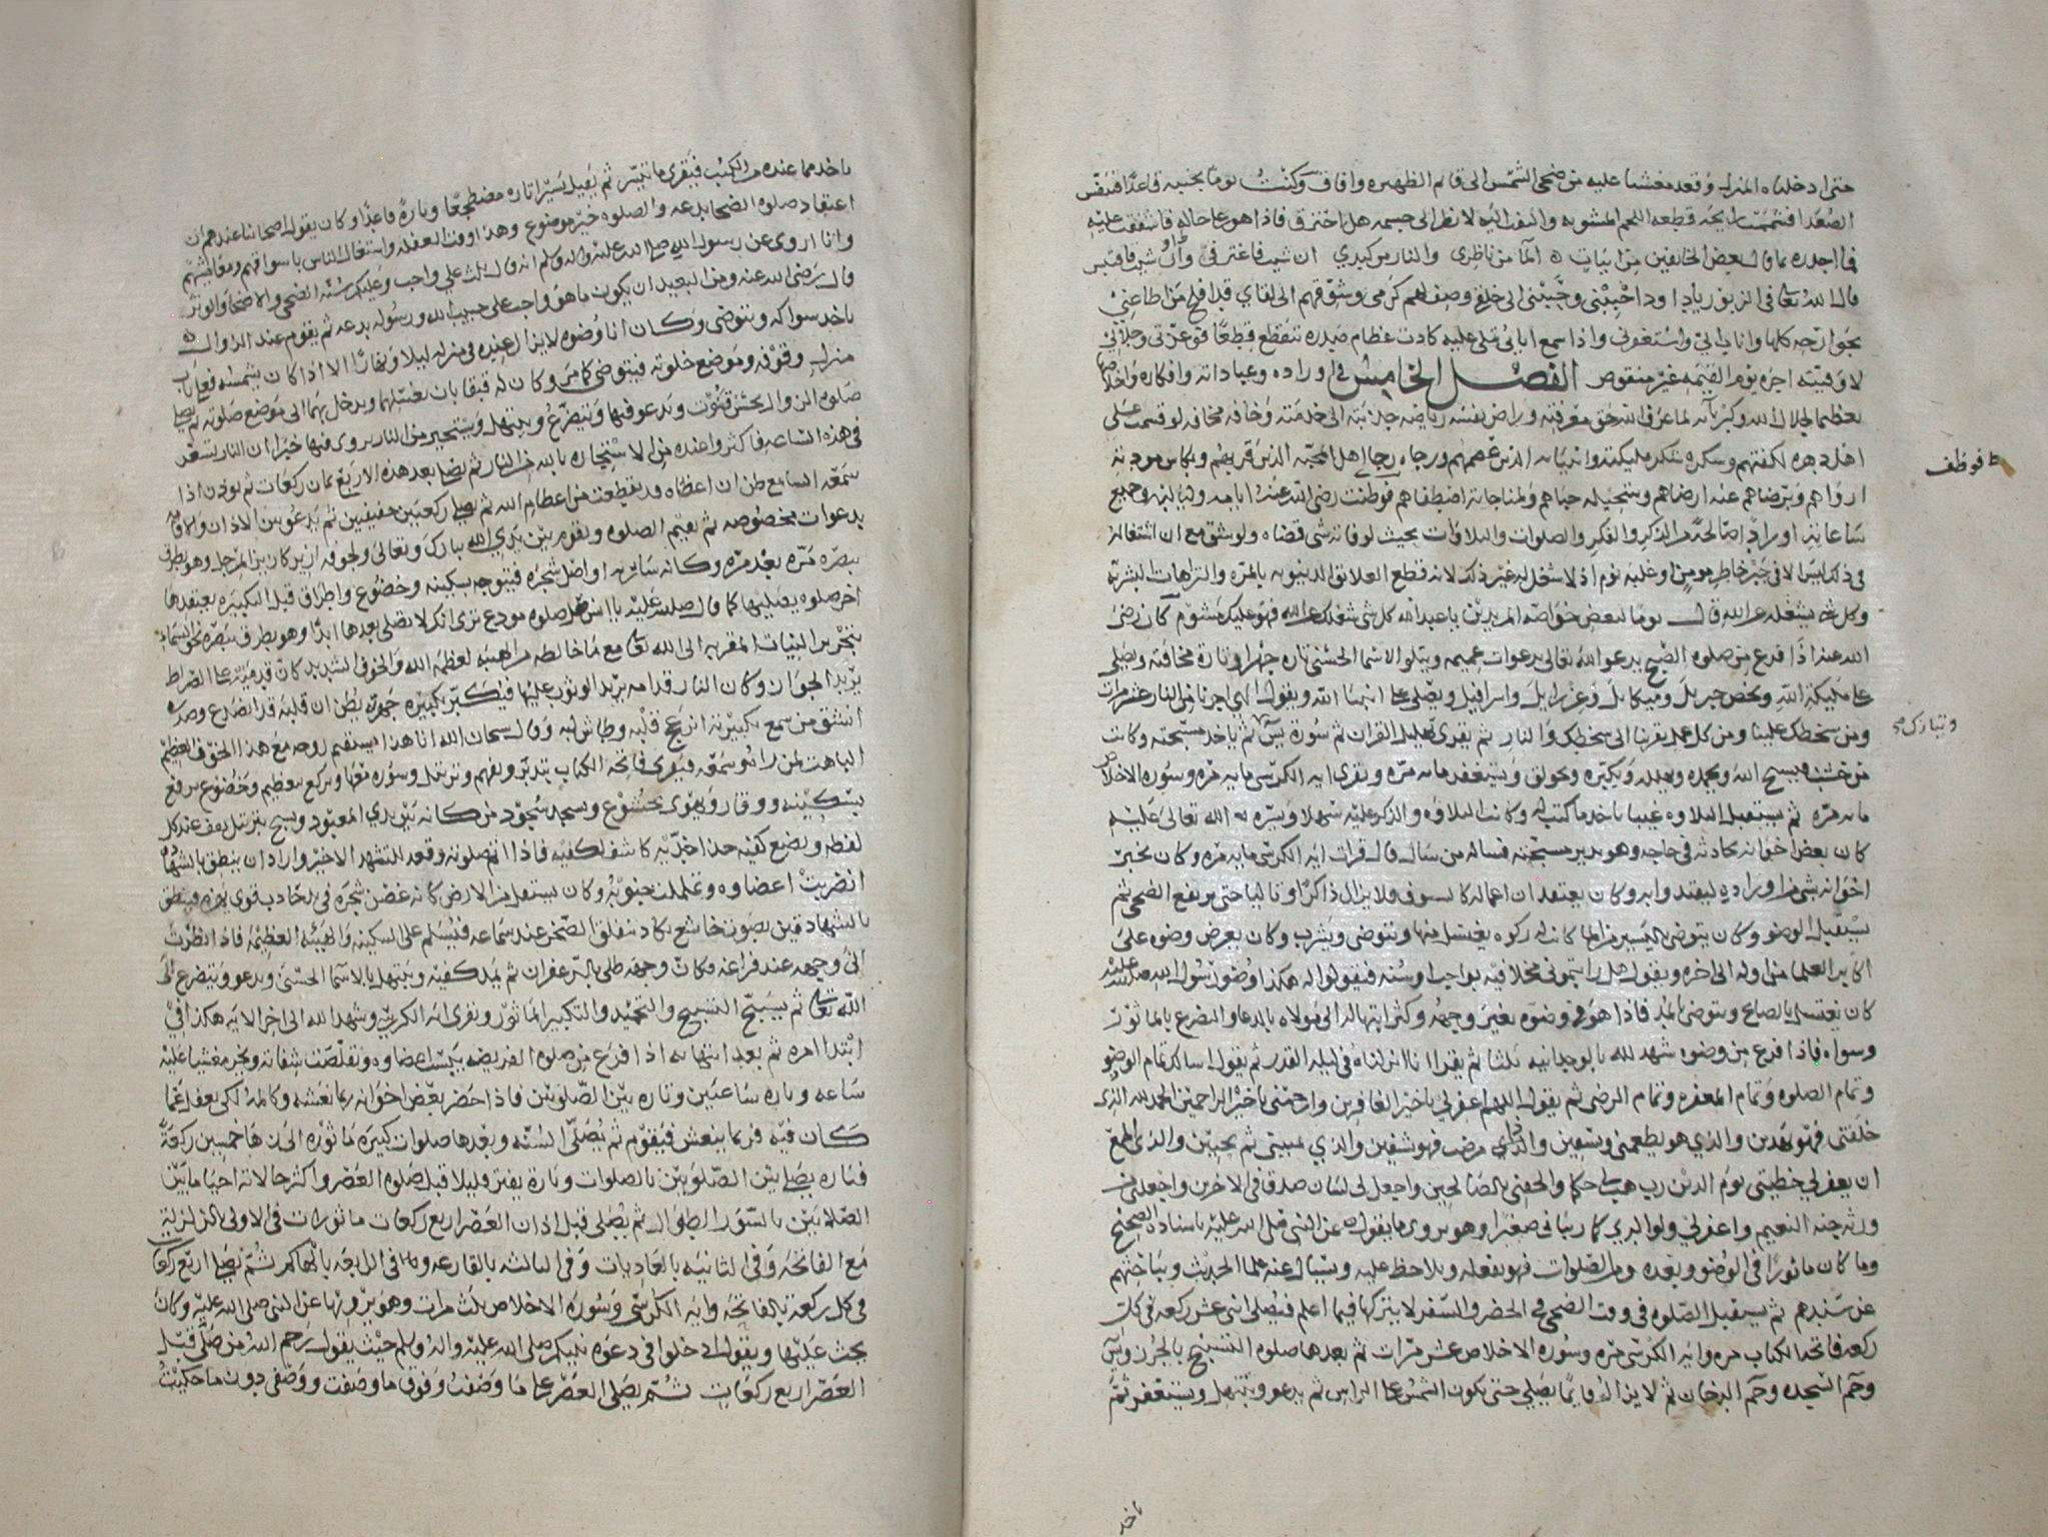 حتى ادخلناه المنزل وقعد مغشيا عليه من ضحى الشمس الى قائم الظهيره وافاق وكنت يوما بجنبه قاعدا فتنفس
الصعدا فشممت رايحه قطعه اللحم المشويه والتفت اليه لانظر الى جسمه هل احترق فاذا هو على حاله فاشفقت عليه
فما اجد ره ما قال بعض الخايفين من ابيات المآ من ناظري والنار من كبدي ان شيت فاغترفي وان شيت فاقتبس
قال الله تعالى في الزبور يا داود احببني وحببني الى خلقي وصف لهم كرمي وشوقهم الى لقاي قد افلح من اطاعني
بجوارحه كلها وانا به ابي واستغفرني واذا سمع اياتي تتلى عليه كادت عظام صدره تتقطع قطعا فوعزتي وجلالي
لاوفينه اجره يوم القيمه غير منقوص الفصل الخامس في اوراده وعباداته وافكاره واخلاصه
تعظيما لجلال الله وكبريائه لما عرف الله حق معرفته وراض نفسه رياضه جذبته الى خدمته وخافه مخافه لو قسمت على
اهل دهره لكفتهم وشكره شكر مليكته وانبيائه الذين عصمهم ورجاه رجا اهل المحبه الذين قربهم وبكاس مودته
ارواهم وبرضاهم عنه ارضاهم وبتبجيله حباهم ولمناجاته اصطفاهم فوظف رضي الله عنه ايامه ولياليه وجميع
ساعاته اورادا صالحة من الذكر والفكر والصلوات والتلاوات بحيث لو فاته شي قضاه ولو شق مع ان اشتغاله
في ذلك ليس الا في جبر خاطر مومن او غلبه نوم اذ لا شغل له غير ذلك لانه قطع العلائق الدنيويه بالمره والترهات البشريه
وكل شي يشغله عن الله قال يوما لبعض خواصه المريدين يا عبد الله كل شي شغلك عن الله فهو عليك مشوم كان رضي
الله عنه اذا فرغ من صلوه الصبح يدعو الله تعالى بدعوات عميمه ويتلو الاسما الحسنى تاره جهرا وتارة مخافته ويصلي
على مليكة الله ويخص جبريل وميكايل وعزرايل واسرافيل ويصلي على انبيا الله ويقول الهي اجرنا من النار عشر مرات
ومن سخطك علينا ومن كل عمل يقربنا الى سخطك والنار ثم يقرى تهليل القران ثم سورة يس ثم ياخذ مسبحته وكانت
من خشب فيسبح الله ويحمده ويهلله ويكبره ويحولق ويستغفر مائه مره ويقرى ايه الكرسي مايه مره وسوره الاخلاص
مائه مره ثم يستقبل التلاوه غيبا ياخذ ما كتب له وكانت التلاوه والذكر عليه سهلا ويسره الله تعالى عليه
كان بعض اخوانه يحادثه في حاجه وهو يدير مسبحته فساله من سال قال قرات ايه الكرسي مايه مره وكان يخبر
اخوانه بشي من اوراده ليقتدوا به وكان يعتقد ان اعماله كلا سوف ولا يزال ذاكرا وتاليا حتى يرتفع الضحى ثم
يستقبل الوضو وكان يتوضى باليسير من الما كانت له ركوه يغتسل منها ويتوضى ويشرب وكان يعرض وضوه على
اكابر العلما من اوله الى اخره ويقول هل رايتموني مخلا فيه بواجب او سنه فيقولوا له هكذا وضو رسول الله صلى الله عليه
كان يغتسل بالصاع ويتوضى بالمد فاذا هو في وضوه يغير وجهه وكثر ابتهاله الى مولاه بالدعا والتضرع بالماثور
وسواه فاذا فرغ من وضوه شهد لله بالوحدانيه ثلثا ثم يقرا انا انزلناه في ليله القدر ثم يقول اسالك تمام الوضو
وتمام الصلوه وتمام المغفره وتمام الرضى ثم يقول اللهم اغفر لي يا خير الغافرين وارحمني يا خير الراحمين الحمد لله الذي
خلقني فهو يهدين والذي هو يطعمني ويسقين واذا مرضت فهو يشفين والذي يميتني ثم يحيين والذي اطمع
ان يغفر لي خطيئتي يوم الدين رب هب لي حكما والحقني بالصالحين واجعل لي لسان صدق في الاخرين واجعلني من
ورثه جنه النعيم واغفر لي ولوالدي كما ربياني صغيرا وهو يروي ما يقوله عن النبي صلى الله عليه باسناده الصحيح
وما كان ماثورا في الوضو وبعده ومن الصلوات فهو يفعله ويلاحظ عليه ويسال عنه علما الحديث ويباحثهم
عن سندهم ثم يستقبل الصلوه في وقت الضحى في الحضر والسفر لا يتركها فيما اعلم فيصلي اثنى عشر ركعه في كل
ركعه فاتحه الكتاب مره وايه الكرسي مره وسوره الاخلاص عشر مرات ثم بعدها صلوه التسبيح بالجرز ويس
وحم السجده وحم الدخان ثم لا يزال قايما يصلي حتى تكون الشمس على الراس ثم يدعو ويبتهل ويستغفر ثم
فوظف
وتبارك صح
ياخذ
ياخذ مما عنده من الكتب فيقرى ما تيسر ثم يقيل يسيرا تاره مضطجعا وتارة قاعدا وكان يقول اصحابنا عندهم ان
اعتقاد صلوه الضحا بدعه والصلوه خير موضوع وهذا وقت الغفله واشتغال الناس باسواقهم ومعايشهم
وانا اروى عن رسول الله صلى الله عليه واله وسلم انه قال ثلث علي واجب وعليكم سنه الضحى والاضحا والوتر
قال رضي الله عنه ومن البعيد ان يكون ما هو واجب على حبيب الله ورسوله بدعه ثم يقوم عند الزوال
ياخذ سواكه ويتوضى وكان انا وضوه لا يزال عنده في منزله ليلا ونهارا الا اذا كان بشمسه فعلى باب
منزله وقوفه وموضع خلوته فيتوضى كما مر وكان له قبقابان يغسلهما ويدخل بهما الى موضع صلوته ثم يصلي
صلوه الزوال بحسن قنوت ويدعو فيها ويتضرع ويبتهل ويستجير من النار يروى فيها خبرا ان النار تسعر
في هذه الساعه فاكثروا عنده من الاستجاره بالله من النار ثم يصلى بعد هذه الاربع ثمان ركعات ثم يوذن اذا
سمعه السامع ظن ان اعضاه قد تقطعت من اعظام الله ثم يصلي ركعتين خفيفتين ثم يدعو بين الاذان والاقامه
بدعوات مخصوصه ثم يقيم الصلوه ويقوم بين يدي الله تبارك وتعالى ولجوفه ازيز كازيز المرجل وهو يطرق
ببصره مره بعد مره وكانه ساريه او اصل شجره فيتوجه بسكينه وخضوع واطراق قبل التكبيره يعتقدها
اخر صلوه يصليها كما قال صلى الله عليه يا انس صل صلوه مودع ترى انك لا تصلي بعدها ابدا وهو يطرف ببصره نحو السماء
بتحرير النيات المقربه الى الله تعالى مع ما خالطه من الهيبه لعظمه الله والخوف الشديد كان قدميه على الصراط
يريد الجواز وكان النار قدامه يريد الوثوب عليها فيكبر تكبيره جهره يظن ان قلبه قد انصدع وصدره
انشق من سمع تكبيرته انزعج قلبه وطاش لبه وقال سبحان الله انا هذا يستقيم روحه مع هذا الخوف العظيم
الباهت لمن راه وسمعه فيقرى فاتحه الكتاب بتدبر وتفهم وترتيل وسوره معها ويركع بتعظيم وخضوع يرفع
بسكينه ووقار ويهوى بخشوع ويسجد سجود من كانه بين يدي المعبود ويسبح بترتيل يقف عند كل
لفظه ويضع كفيه حذا خديه كاشفا لكفيه فاذا اتم صلوته وقعد للتشهد الاخير واراد ان ينطق بالشهاده
اضطربت اعضاوه وتململت جنوبه وكان يستقل من الارض كانه غصن شجره في يد جاذب قوي يهزه فينطق
بالشهادتين بصوت خاشع يكاد ينفلق الصخر عند سماعه فيسلم على السكينه والهيئه العظيمه فاذا نظرت
الى وجهه عند فراغه فكان وجهه طلي بالزعفران ثم يمد كفيه ويبتهل بالاسما الحسنى ويدعو ويتضرع الى
الله تعالى ثم يسبح التسبيح والتحميد والتكبير الماثور ويقرى ايه الكرسي وشهد الله الى اخر الايه هكذا في
ابتدا امره ثم بعد انتهايه اذا فرغ من صلوه الفريضه يبست اعضاوه وتقلصت شفتاه ويخر مغشيا عليه
ساعه وتاره ساعتين وتاره بين الصلوتين فاذا حضر بعض اخوانه ربما نعشه وكالمه لكي يعقل عما
كان فيه فربما ينعش فيقوم ثم يصلي السنه وبعدها صلوات كثيره ماثوره الى نهاخمسين ركعة
فتاره يصلي بين الصلوتين بالصلوات وتارة يفتر قليلا قبل صلوه العصر واكثر حالاته احيا ما بين
الصلاتين بالسور الطوال ثم يصلي قبل اذان العصر اربع ركعات ماثورات في الاولى بالزلزله
مع الفاتحه وفي الثانيه بالعاديات وفي الثالثه بالقارعه وفي الرابعه بالهاكم ثم يصلي اربع ركعات
في كل ركعه بالفاتحه وايه الكرسي وسورة الاخلاص ثلث مرات وهو يرويها عن النبي صلى الله عليه وكان
يحث عليها ويقول ادخلوا في دعوه نبيكم صلى الله عليه واله وسلم حيث يقول رحم الله من صلى قبل
العصر اربع ركعات ثم يصلي العصر على ما وصفت وفوق ما وصفت ووصفي دون ما حكيت